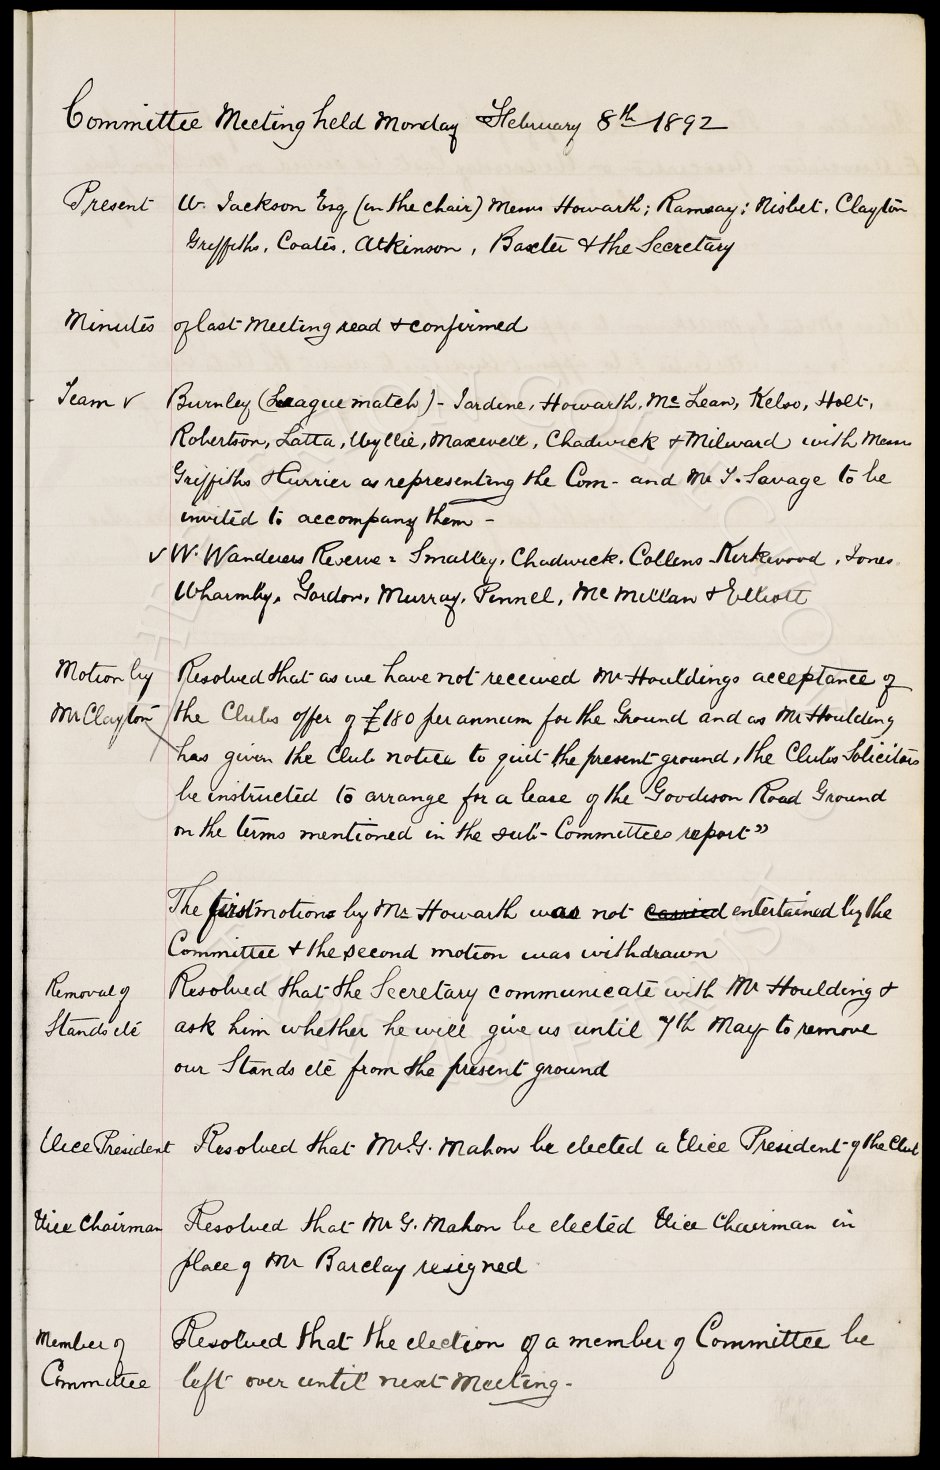 Committee Meeting held Monday February 8th 1892
Present W. Jackson Esq (in the chair) Messrs Howarth; Ramsay; Nisbet, Clayton
Griffiths, Coates, Atkinson, Baxter & the Secretary
Minutes of last Meeting read & confirmed
Team v Burnley (League match) - Jardine, Howarth, Mc Lean, Kelso, Holt,
Robertson, Latta, Wyllie, Maxwell, Chadwick & Milward with Messrs
Griffiths & Currier as representing the Com - and Mr T. Savage to be
invited to accompany them -
v W. Wanderers Reserve = Smalley, Chadwick, Collens Kirkwood, Jones
Wharmby, Gordon, Murray, Pinnel, Mc Millan & Elliott
Motion by Resolved that as we have not received Mr Houldings acceptance of
Mr Clayton the Clubs offer of £180 per annum for the Ground and as Mr Houlding
has given the Club notice to quit the present ground, the Clubs Solicitors
be instructed to arrange for a lease of the Goodison Road Ground
on the terms mentioned in the sub-Committees report"
The first motion by Mr Howarth was not carried entertained by the
Committee & the second motion was withdrawn
Removal of Resolved that the Secretary communicate with Mr Houlding &
Stands etc ask him whether he will give us until 7th May to remove
our Stands etc from the present ground
Vice President Resolved that Mr. G. Mahon be elected a Vice President of the Club
Vice Chairman Resolved that Mr G. Mahon be elected Vice Chairman in
place of Mr Barclay resigned
Member of Resolved that the election of a member of Committee be
Committee left over until next Meeting -